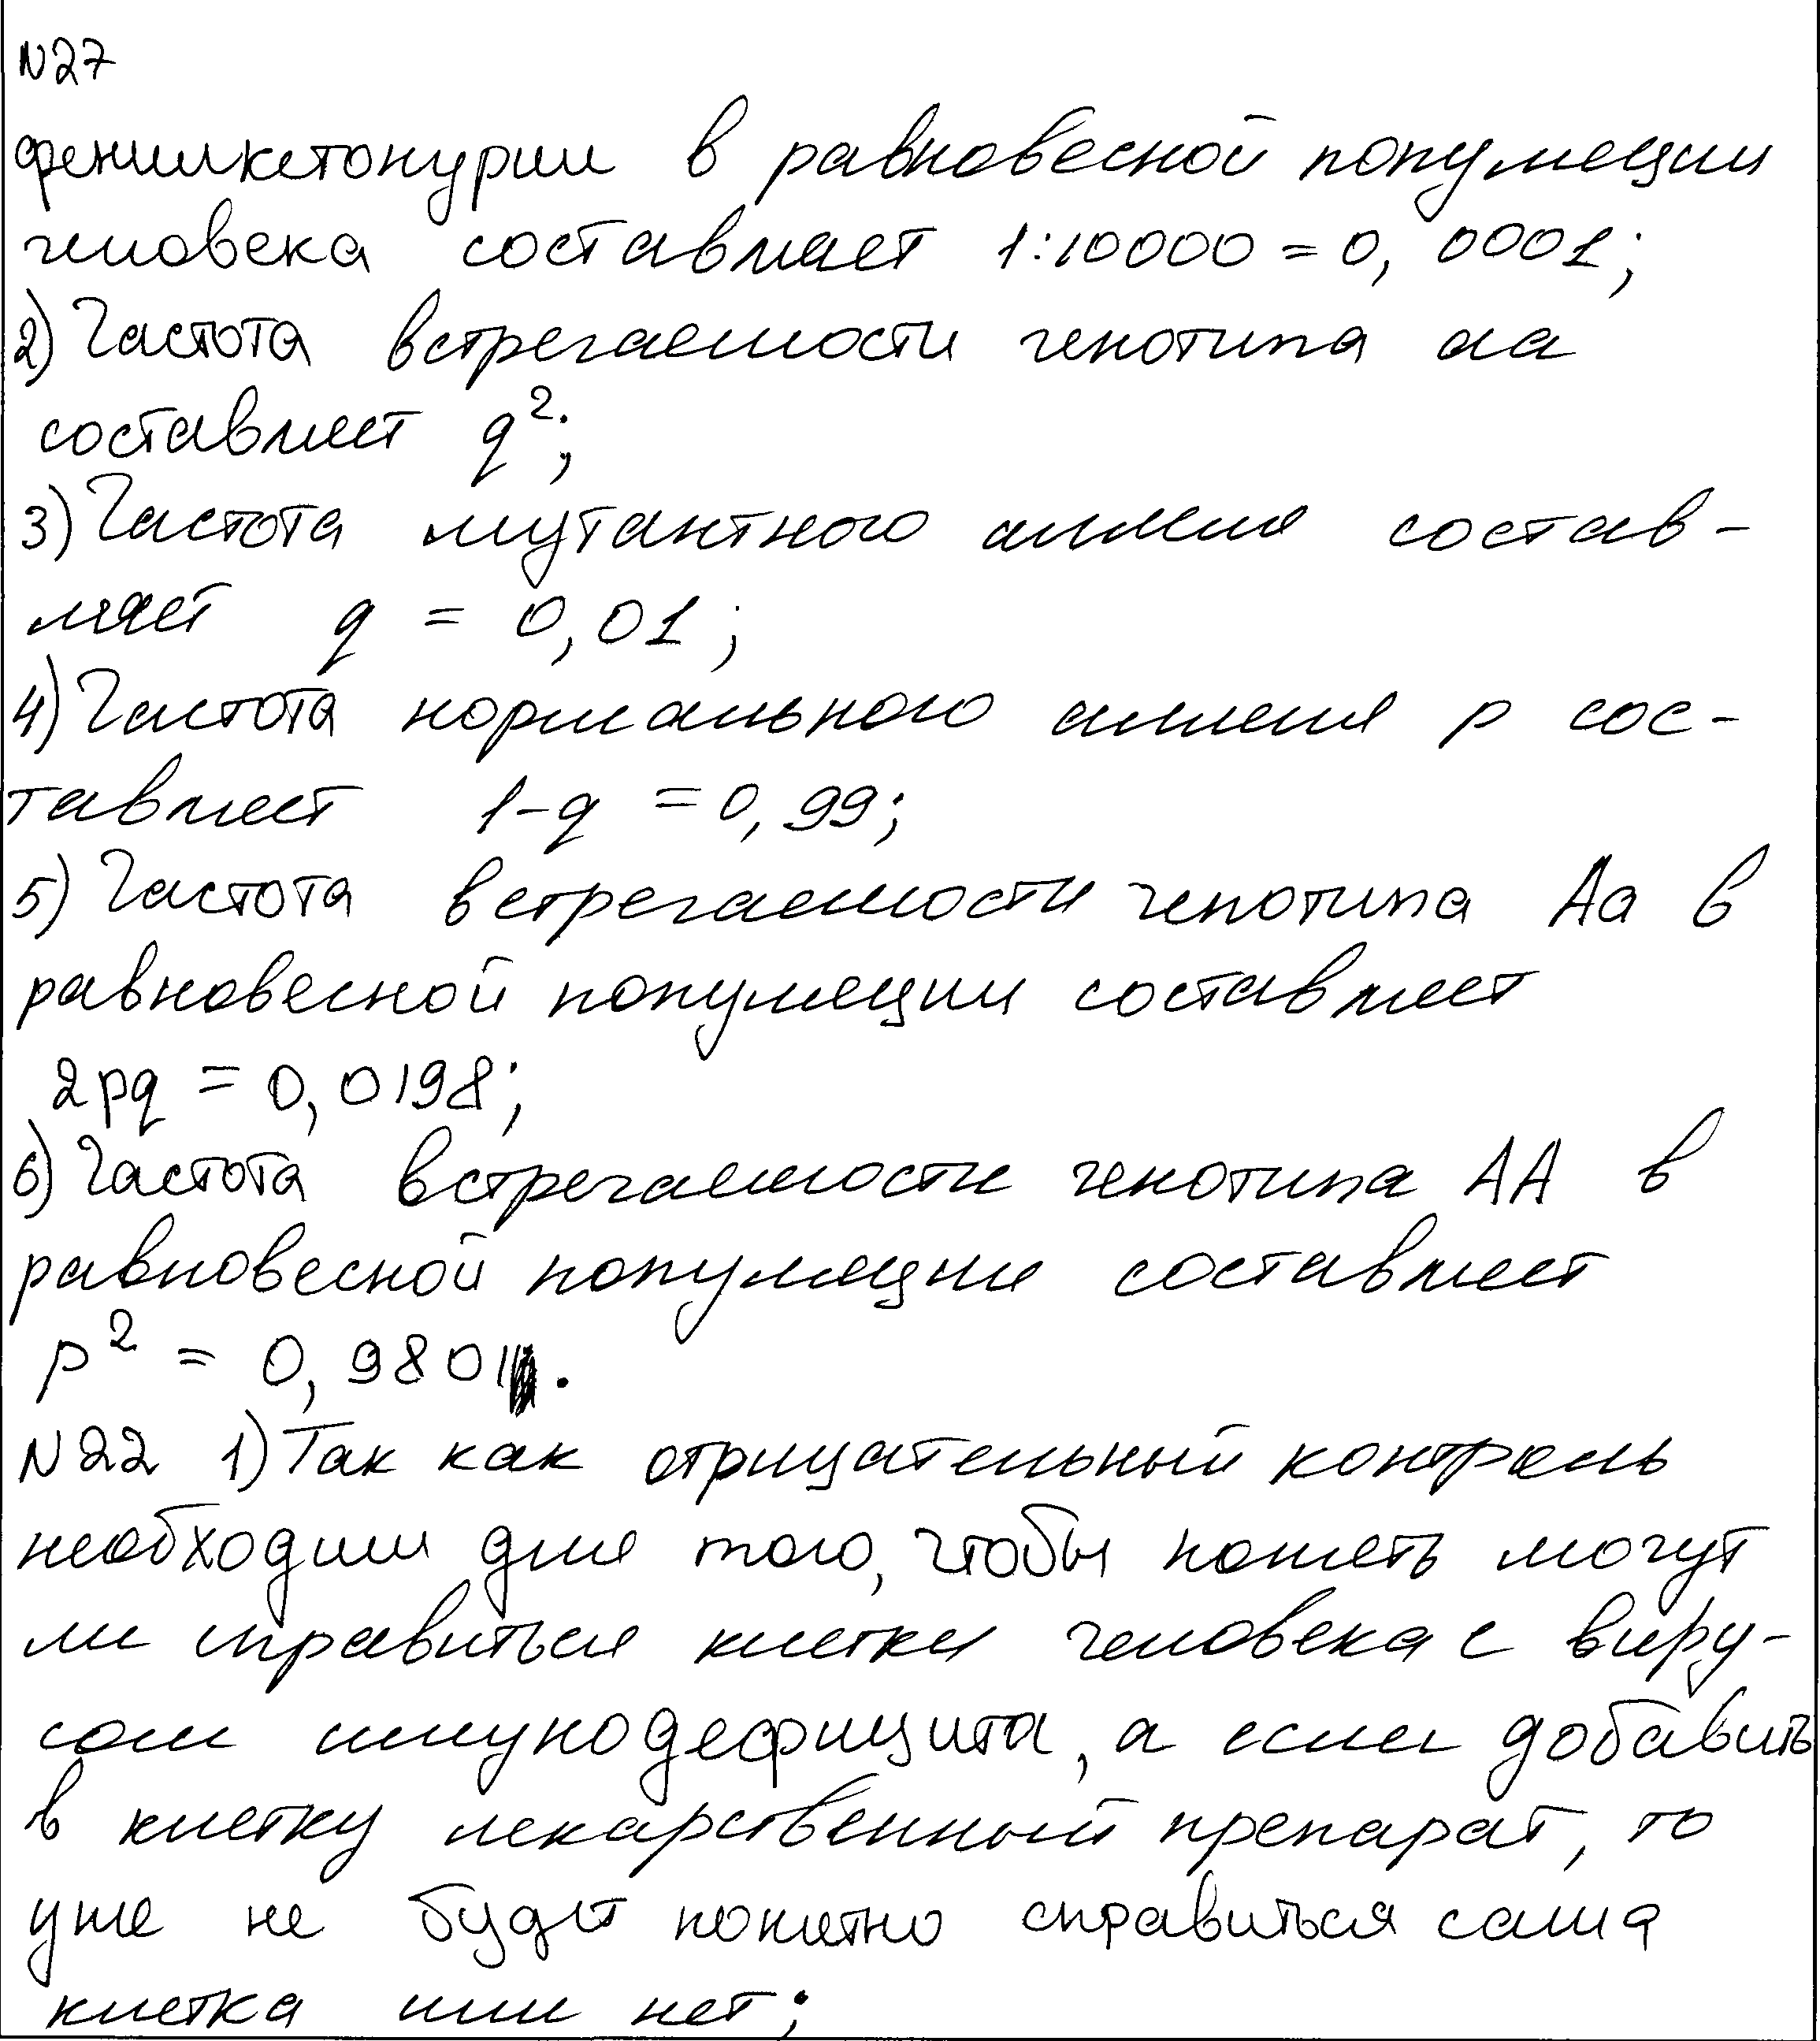 N27
фенилкетонурии в равновесной популяции
человека составляет 1:10000 = 0, 0001;
2) Частота встречаемости генотипа аа
составляет q²;
3) Частота мутантного аллеля состав-
ляет q = 0,01;
4) Частота нормального аллеля p сос-
тавляет 1-q = 0,99;
5) Частота встречаемости генотипа Аа в
равновесной популяции составляет
2pq = 0,0198;
6) Частота встречаемости генотипа АА в
равновесной популяции составляет
p² = 0,9801.
N22 1) Так как отрицательный контроль
необходим для того, чтобы понять могут
ли справиться клетки человека с виру-
сом иммунодефицита, а если добавить
в клетку лекарственный препарат, то
уже не будет понятно справиться сама
клетка или нет;